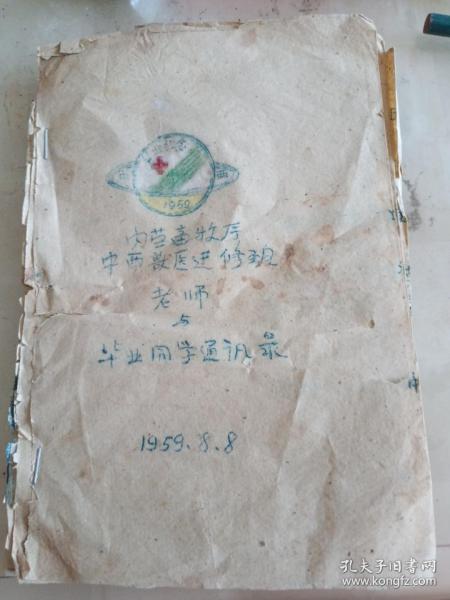 毕业纪念
中 西
1959
内蒙畜牧厅
中西兽医进修班
老师
与
毕业同学通讯录
1959.8.8
孔夫子旧书网
www.kongfz.com